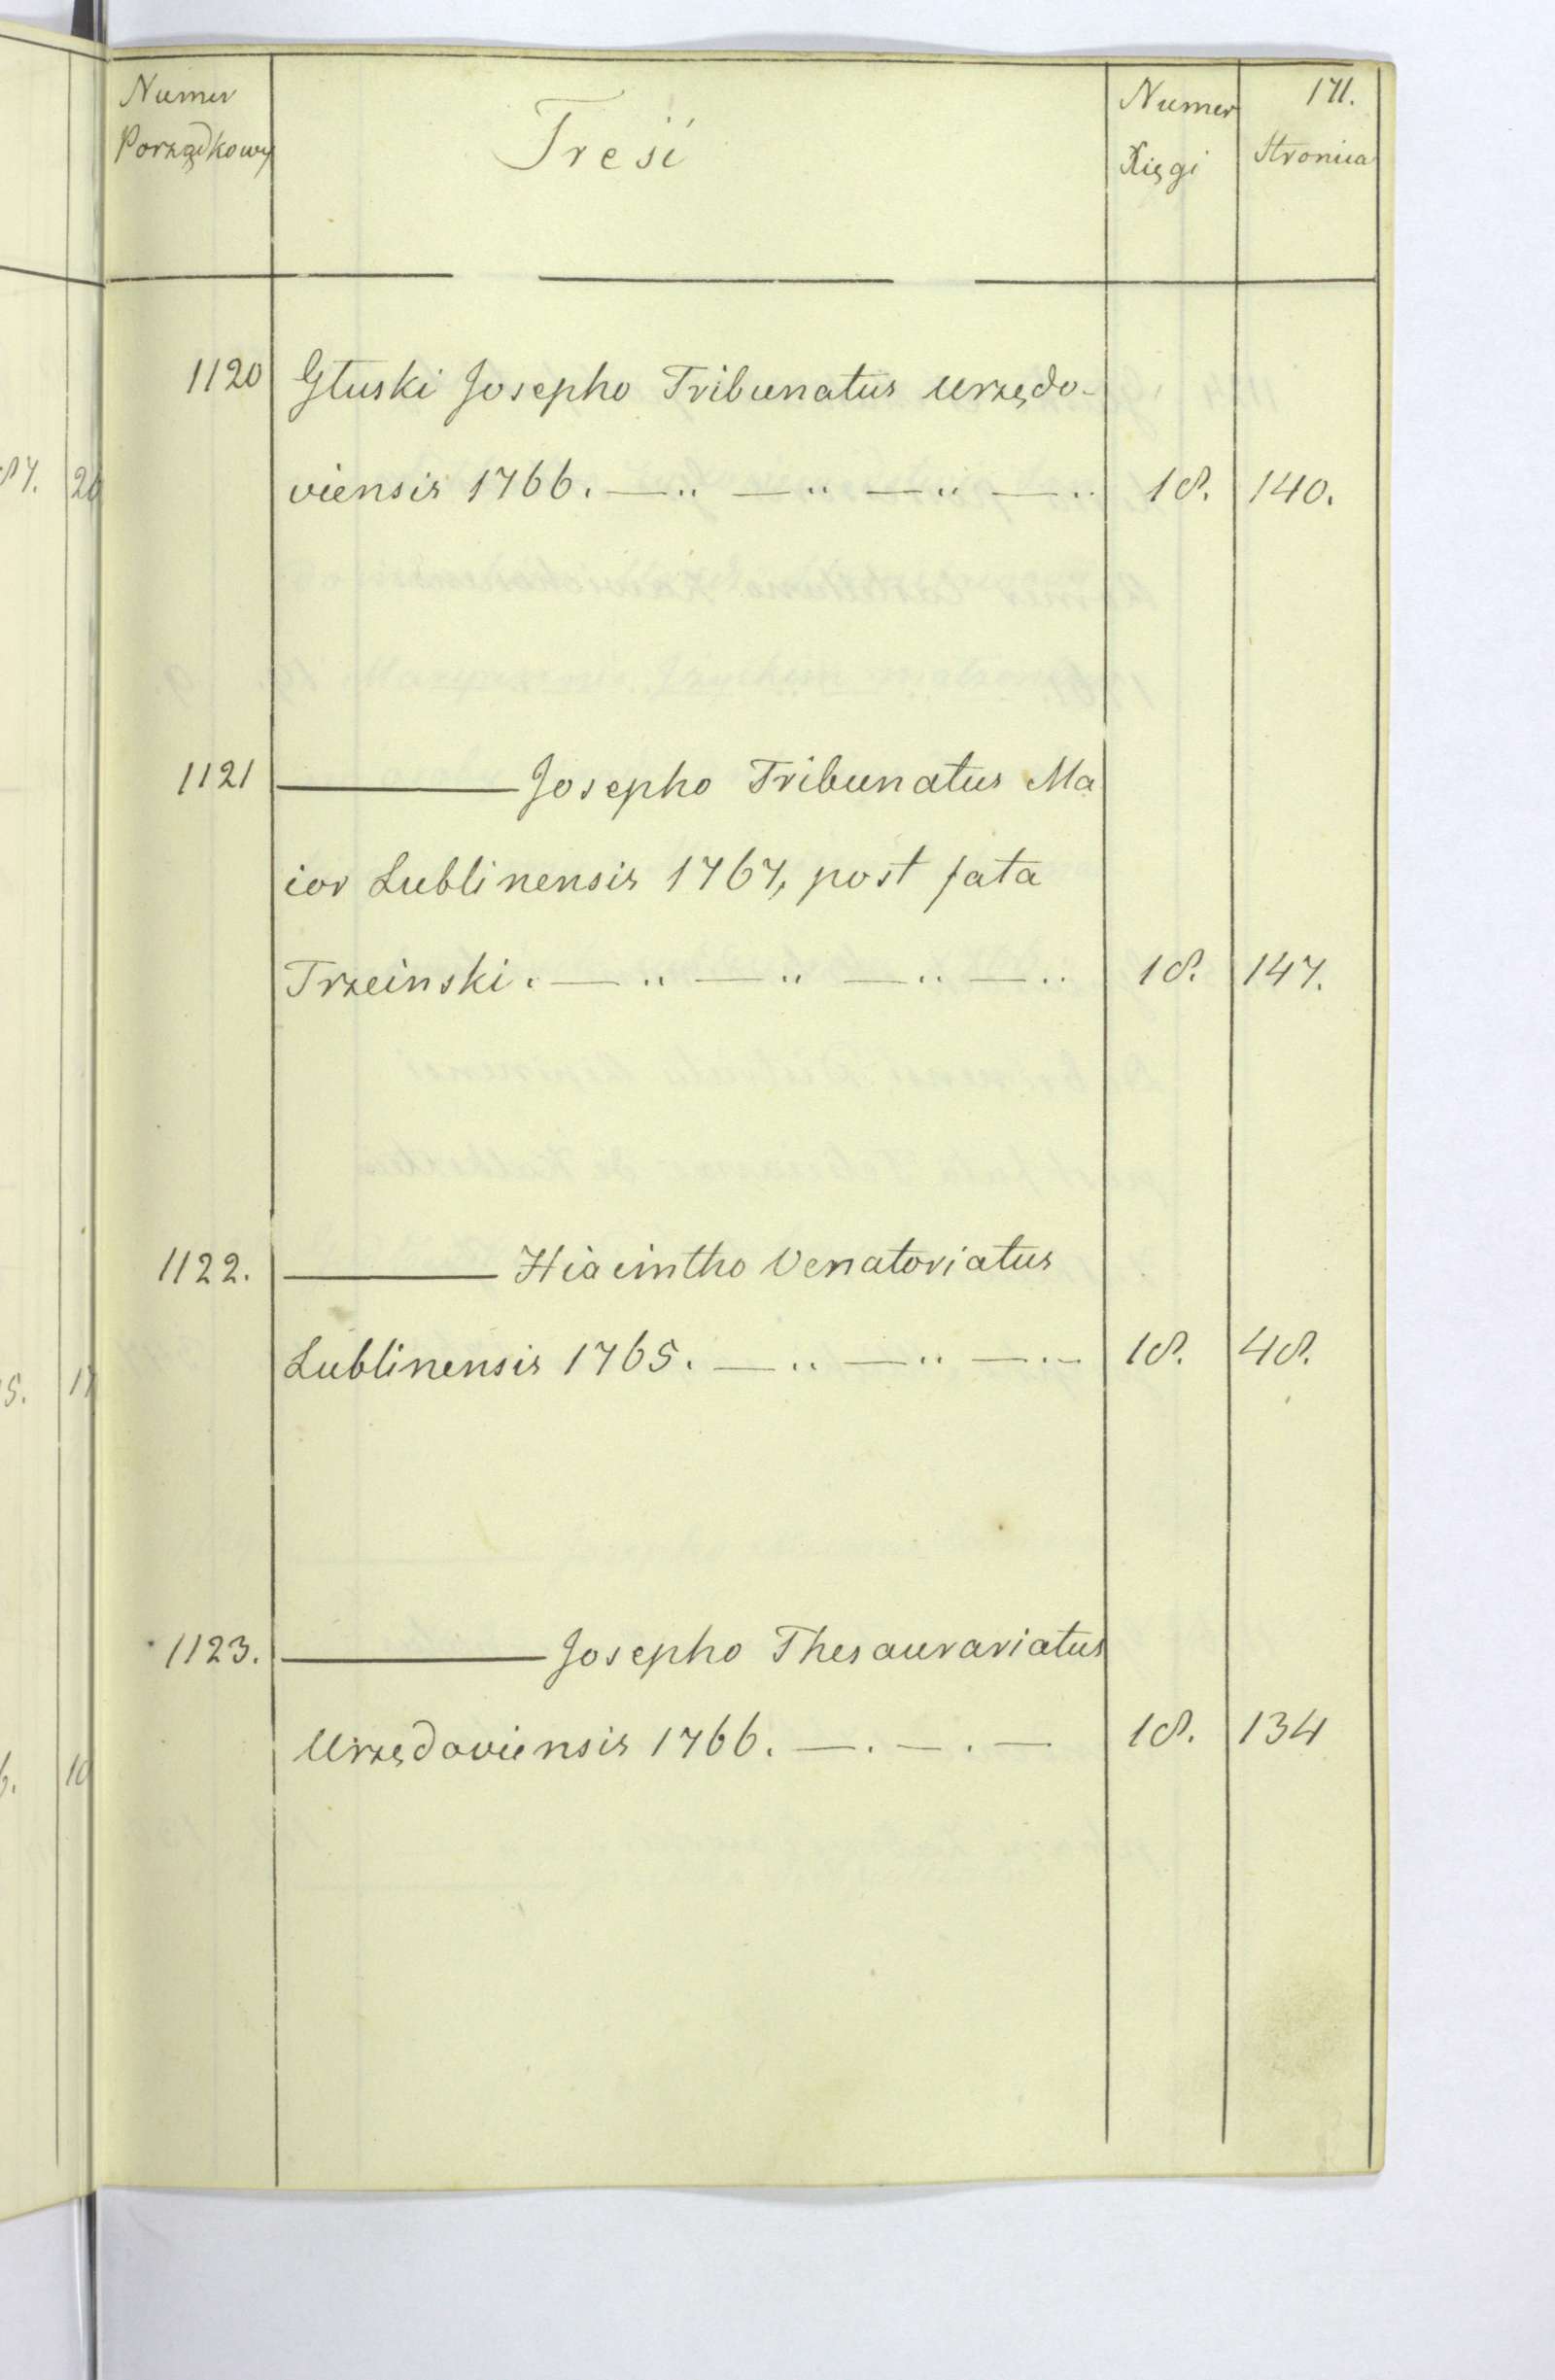 171.
Numer Porządkowy
Treść
Numer Xięgi
Stronica
1120 Głuski Josepho Tribunatus Urzędo-
viensis 1766. — „ — „ — „ — „ 18. 140.
1121 ——— Josepho Tribunatus Ma
ior Lublinensis 1767, post fata
Trzcinski. — „ — „ — „ — „ 18. 147.
1122. ——— Hiacintho Venatoriatus
Lublinensis 1765. — „ — „ — . — 18. 48.
1123. ——— Josepho Thesaurariatus
Urzędoviensis 1766. — . — . — 18. 134